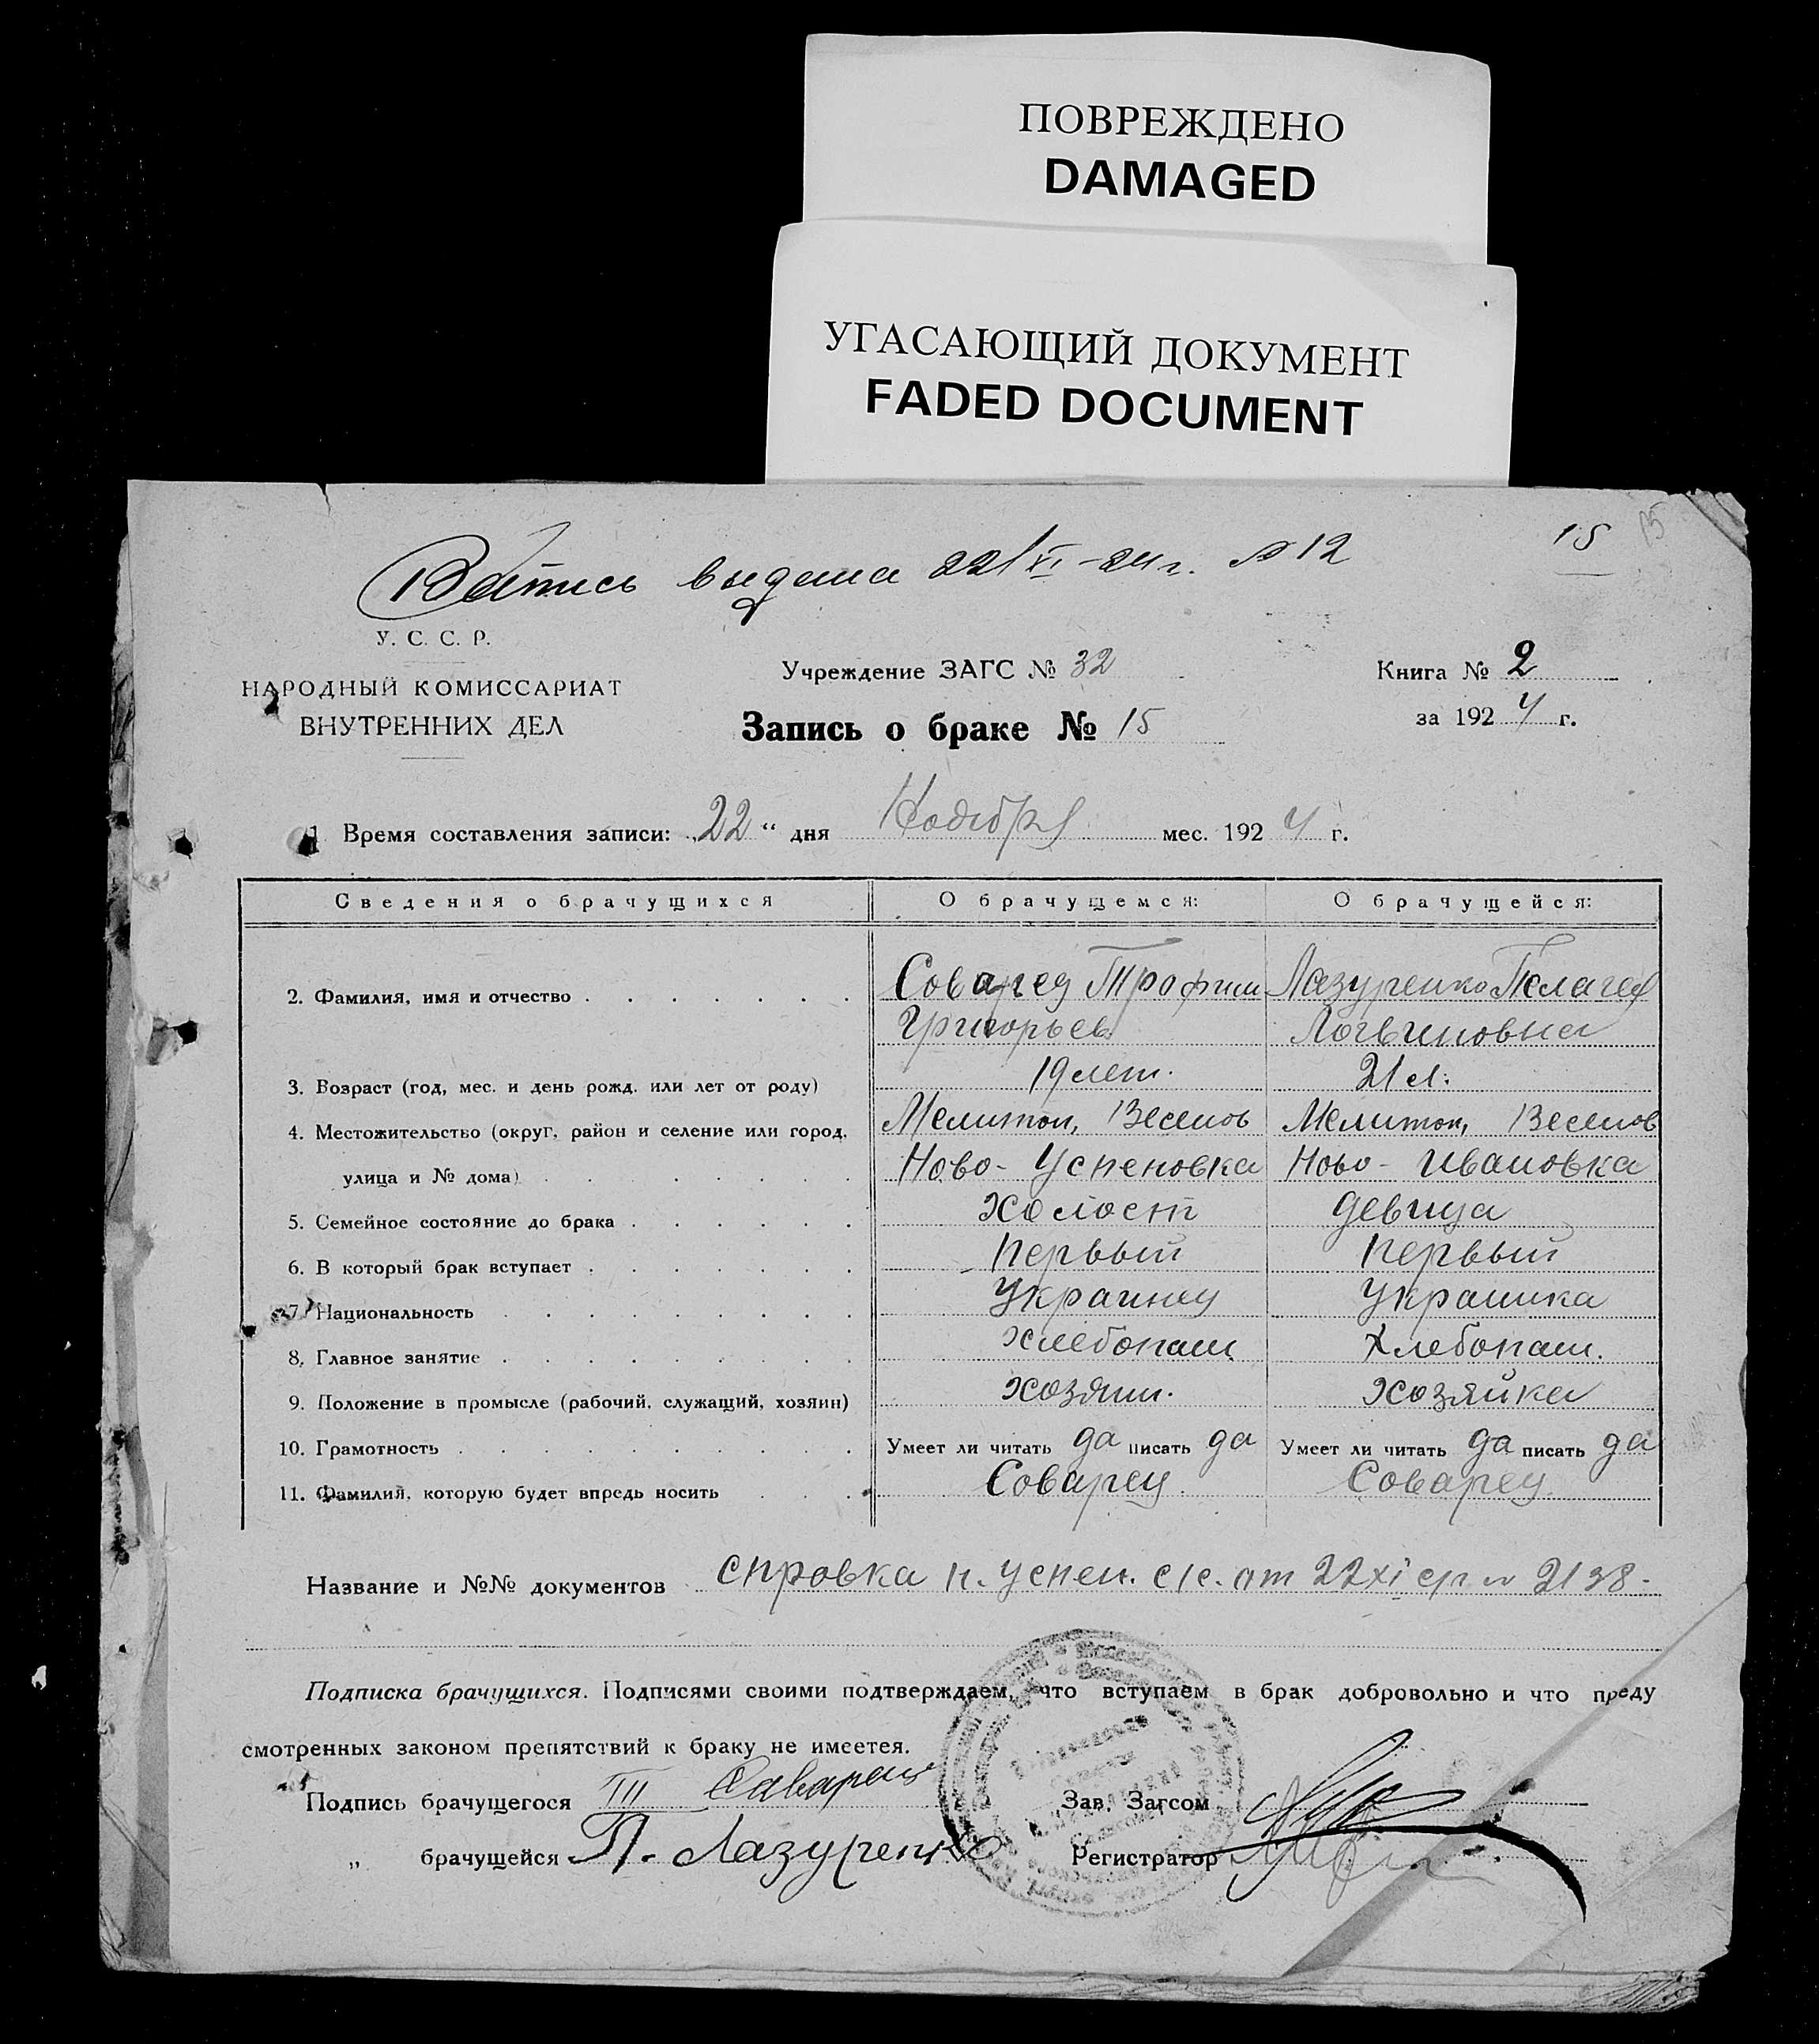 ПОВРЕЖДЕНО
DAMAGED
УГАСАЮЩИЙ ДОКУМЕНТ
FADED DOCUMENT
15 15
выдана 22/XI-24 г. № 12
У. С. С. Р.
НАРОДНЫЙ КОМИССАРИАТ
ВНУТРЕННИХ ДЕЛ
Учреждение ЗАГС № 32
Книга № 2
Запись о браке № 15
за 1924 г.
1 Время составления записи: „22“ дня Ноября мес. 1924 г.
Сведения о брачущихся О брачущемся: О брачущейся:
2. Фамилия, имя и отчество Соварец Трофим Лазуренко Пелагея
Григорьев Логвиновна
3. Возраст (год, мес. и день рожд. или лет от роду) 19 лет. 21 л.
4. Местожительство (округ, район и селение или город, Мелитоп, Веселов Мелитоп, Веселов
улица и № дома) Ново-Успеновка Ново-Ивановка
5. Семейное состояние до брака холост девица
6. В который брак вступает первый первый
7. Национальность Украинец Украинка
8. Главное занятие хлебопаш. хлебопаш.
9. Положение в промысле (рабочий, служащий, хозяин) хозяин. хозяйка
10. Грамотность Умеет ли читать да писать да Умеет ли читать да писать да
11. Фамилия, которую будет впредь носить Соварец Соварец
Название и №№ документов справка н. успен. с/с. от 22 XI с/г № 2138-
Подписка брачущихся. Подписями своими подтверждаем, что вступаем в брак добровольно и что преду
смотренных законом препятствий к браку не имеетея.
Подпись брачущегося Саварец Зав. Загсом
„ брачущейся П. Лазуренко Регистратор